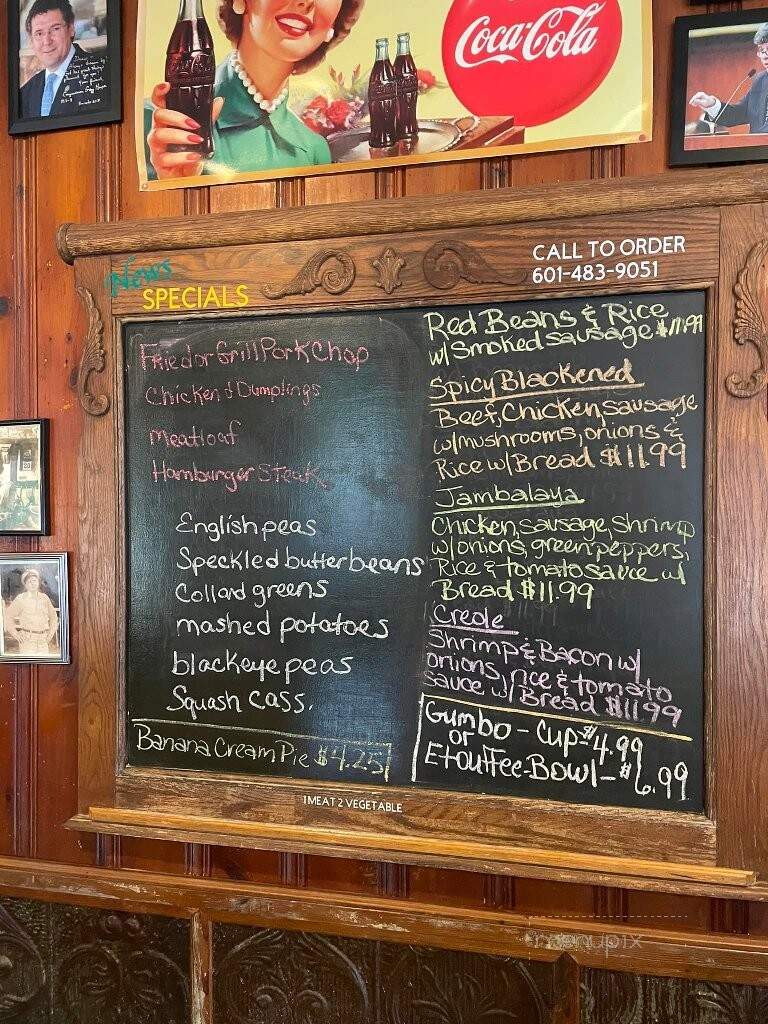 Coca-Cola
CALL TO ORDER
601-483-9051
News
SPECIALS
Fried or Grill Pork Chop
Chicken & Dumplings
Meatloaf
Hamburger Steak
English peas
Speckled butterbeans
Collard greens
mashed potatoes
blackeye peas
Squash Cass.
Banana Cream Pie $4.25
Red Beans & Rice
w/ Smoked sausage $11.99
Spicy Blackened
Beef, Chicken, sausage
w/mushrooms, onions &
Rice w/ Bread $11.99
Jambalaya
Chicken, sausage, shrimp
w/onions, green peppers,
Rice & tomato sauce w/
Bread $11.99
Creole
Shrimp & Bacon w/
onions, rice & tomato
sauce w/ Bread $11.99
Gumbo - Cup - $4.99
or
Etouffee - Bowl - $6.99
1 MEAT 2 VEGETABLE
menupix